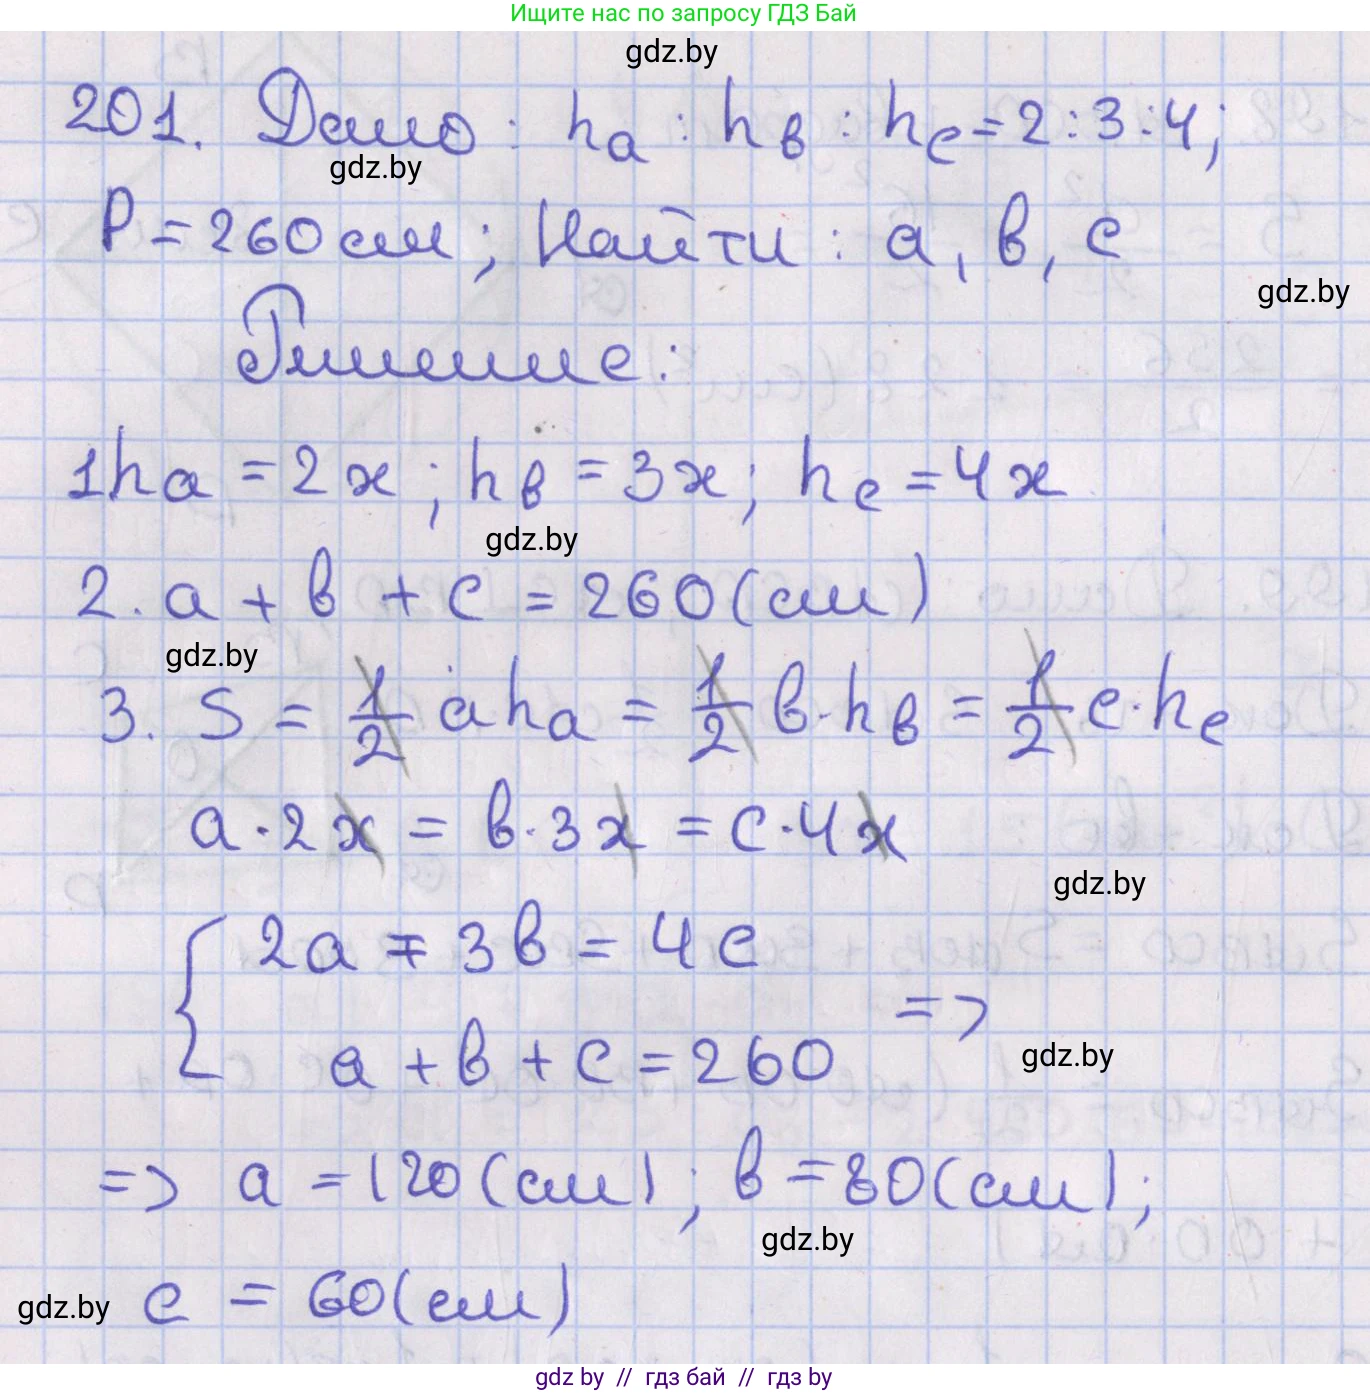 Ищите нас по запросу ГДЗ Бай
gdz.by
201. Дано: hₐ : hв : hс = 2:3:4;
gdz.by
P = 260 см; Найти: а, в, с
gdz.by
Решение:
1 hₐ = 2x; hв = 3x; hс = 4x
gdz.by
2. а + в + с = 260 (см)
gdz.by
3. S = 1/2 а hₐ = 1/2 в · hв = 1/2 с · hс
а · 2x = в · 3x = с · 4x
gdz.by
{ 2а = 3в = 4с
=>
а + в + с = 260
gdz.by
=> а = 120 (см); в = 80 (см);
gdz.by
с = 60 (см)
gdz.by
gdz.by // гдз бай // гдз by